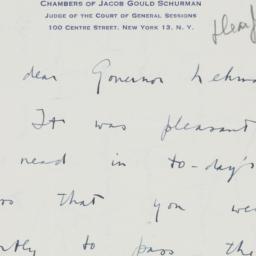 CHAMBERS OF JACOB GOULD SCHURMAN
JUDGE OF THE COURT OF GENERAL SESSIONS
100 CENTRE STREET, NEW YORK 13, N. Y.
dear Governor Lehm
It was pleasant
read in to-day's
that you we
to pass the